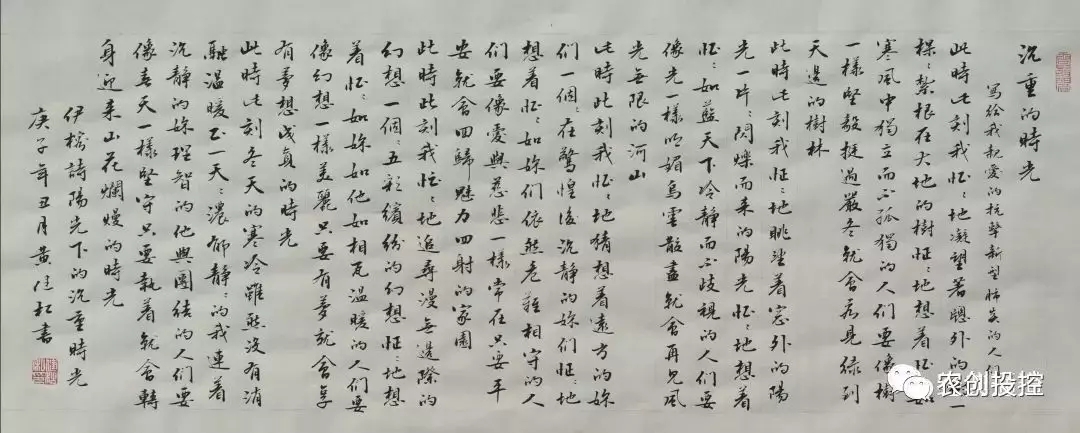 沉重的時光
寫給我親愛的抗擊新型肺炎的人們
此時此刻我怔々地凝望著窗外的一
棵々紮根在大地的樹怔々地想着怔々如
寒風中獨立而不孤獨的人們要像樹
一樣堅毅挺過嚴冬就會看見綠到
天邊的樹林
此時此刻我怔々地眺望着窗外的陽
光一片々閃爍而来的陽光怔々地想着
怔々如藍天下冷靜而不歧視的人們要
像光一樣明媚烏雲散盡就會再見風
光無限的河山
此時此刻我怔々地猜想着遠方的妳
們一個々在驚惶後沉靜的妳們怔々地
想着怔々如妳們依然危難相守的人
們要像愛與慈悲一樣常在只要平
安就會回歸魅力四射的家園
此時此刻我怔々地追尋漫無邊際的
幻想一個々五彩繽紛的幻想怔々地想
着怔々如妳如他如相互溫暖的人們要
像幻想一樣美麗只要有夢就會享
有夢想成真的時光
此時此刻冬天的寒冷雖然沒有消
融溫暖一天々濃郁靜々的我連着
沉靜的妳理智的他與團結的人們要
像春天一樣堅守只要執着就會轉
身迎来山花爛熳的時光
詩陽光下的沉重時光
庚子年丑月黃佳松書
农创投控